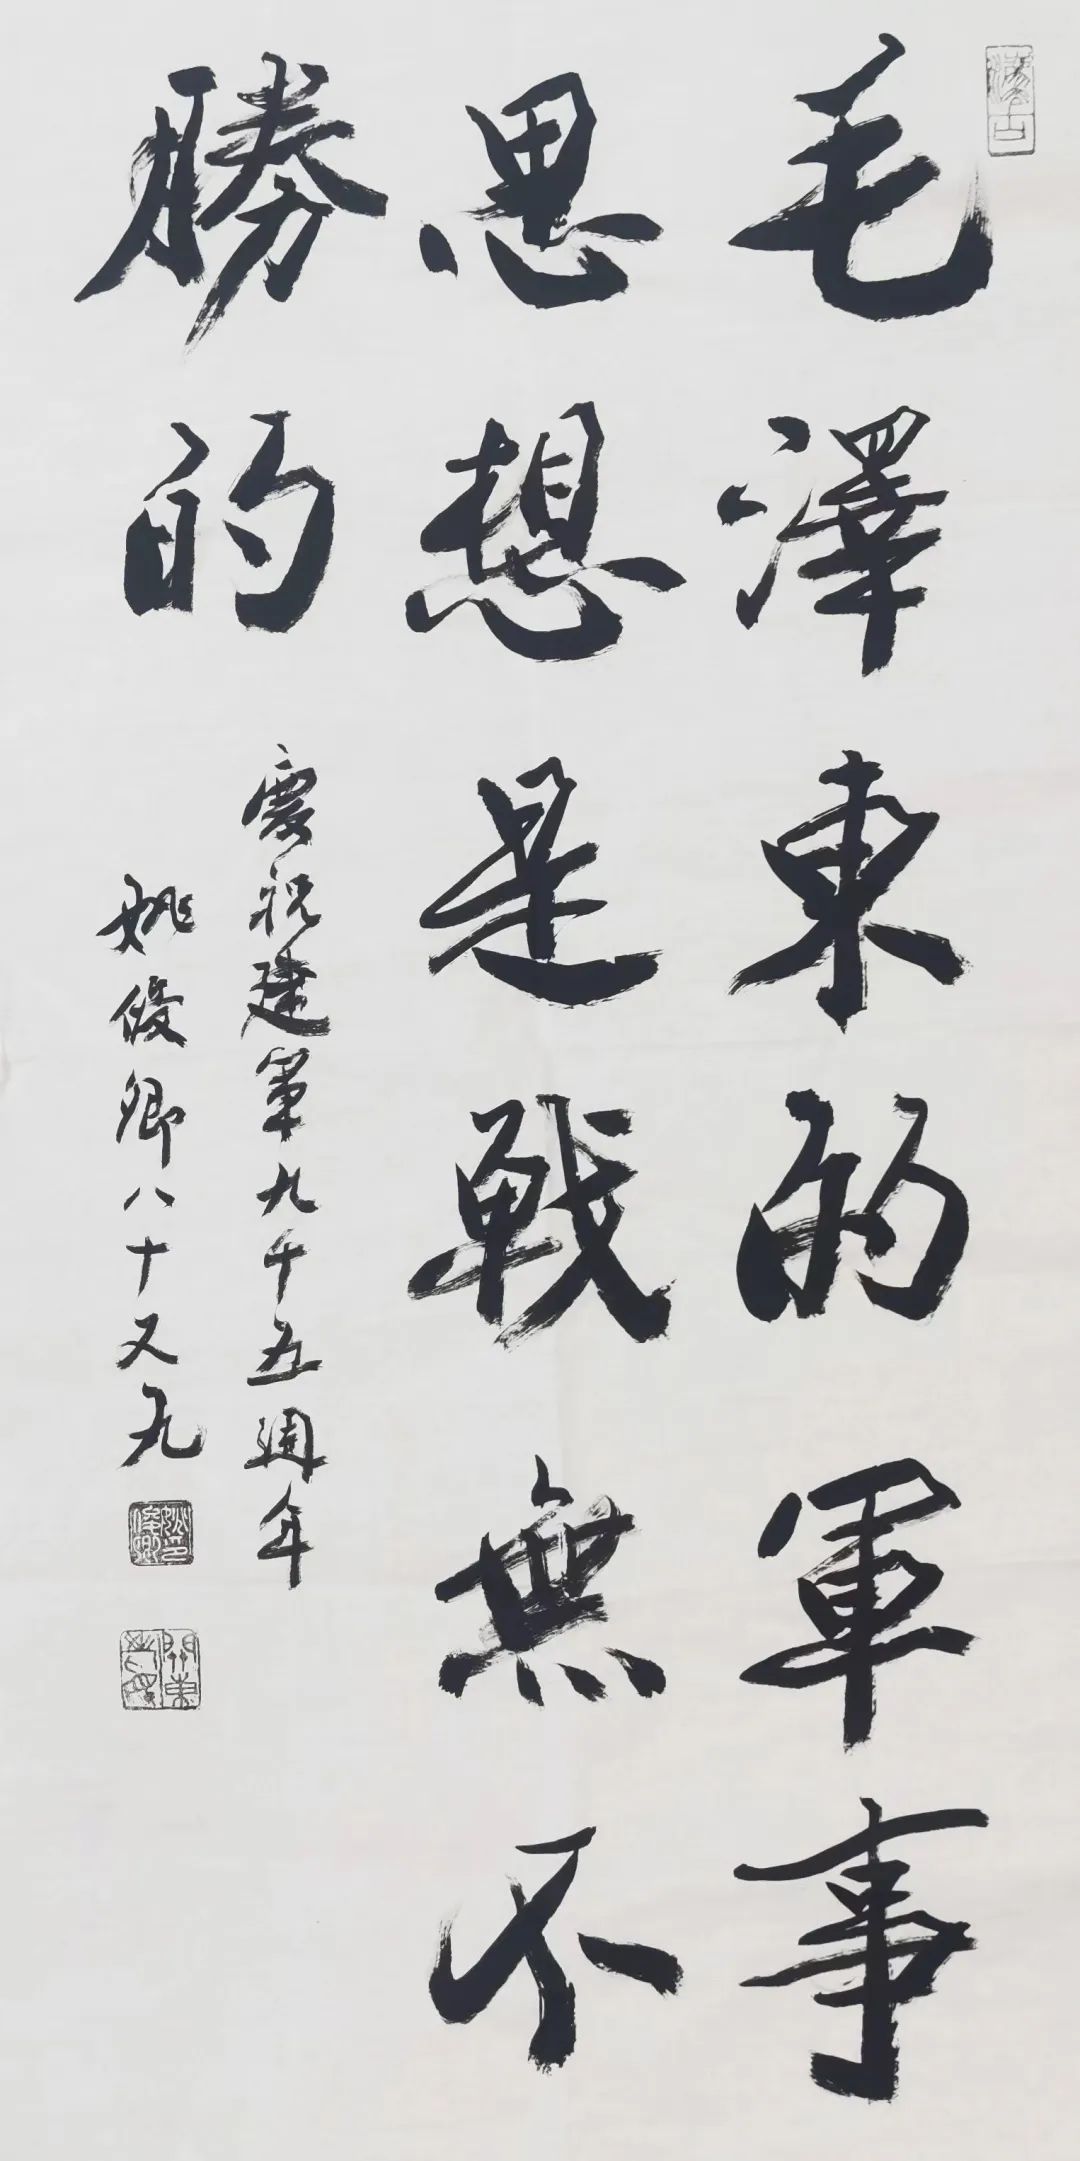 毛澤東的軍事
思想是戰無不
勝的
慶祝建軍九十五週年
姚俊卿八十又九